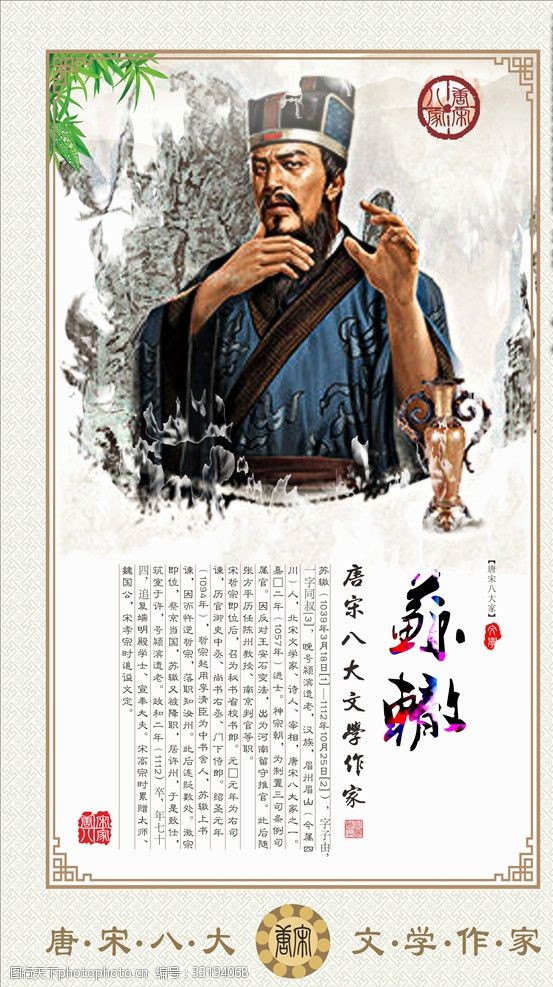 唐宋
八家
【唐宋八大家】
蘇轍
唐宋八大文學作家
苏辙（1039年3月18日[1]—1112年10月25日[2]），字子由，
一字同叔[3]，晚号颍滨遗老，汉族，眉州眉山（今属四
川）人，北宋文学家、诗人、宰相，唐宋八大家之一。
嘉□二年（1057年）进士。神宗朝，为制置三司条例司
属官。因反对王安石变法，出为河南留守推官。此后随
张方平历任陈州教授、南京判官等职。
宋哲宗即位后，召为秘书省校书郎。元□元年为右司
谏，历官御史中丞、尚书右丞、门下侍郎。绍圣元年
（1094年），哲宗起用李清臣为中书舍人，苏辙上书
谏，因而忤逆哲宗，落职知汝州。此后连贬数处。徽宗
即位，蔡京当国，苏辙又被降职，居许州，于是致仕，
筑室于许，号颍滨遗老。政和二年（1112）卒，年七十
四，追复端明殿学士、宣奉大夫。宋高宗时累赠太师、
魏国公，宋孝宗时追谥文定。
唐·宋·八·大 唐宋 文·学·作·家
图行天下photophoto.cn 编号：33194068